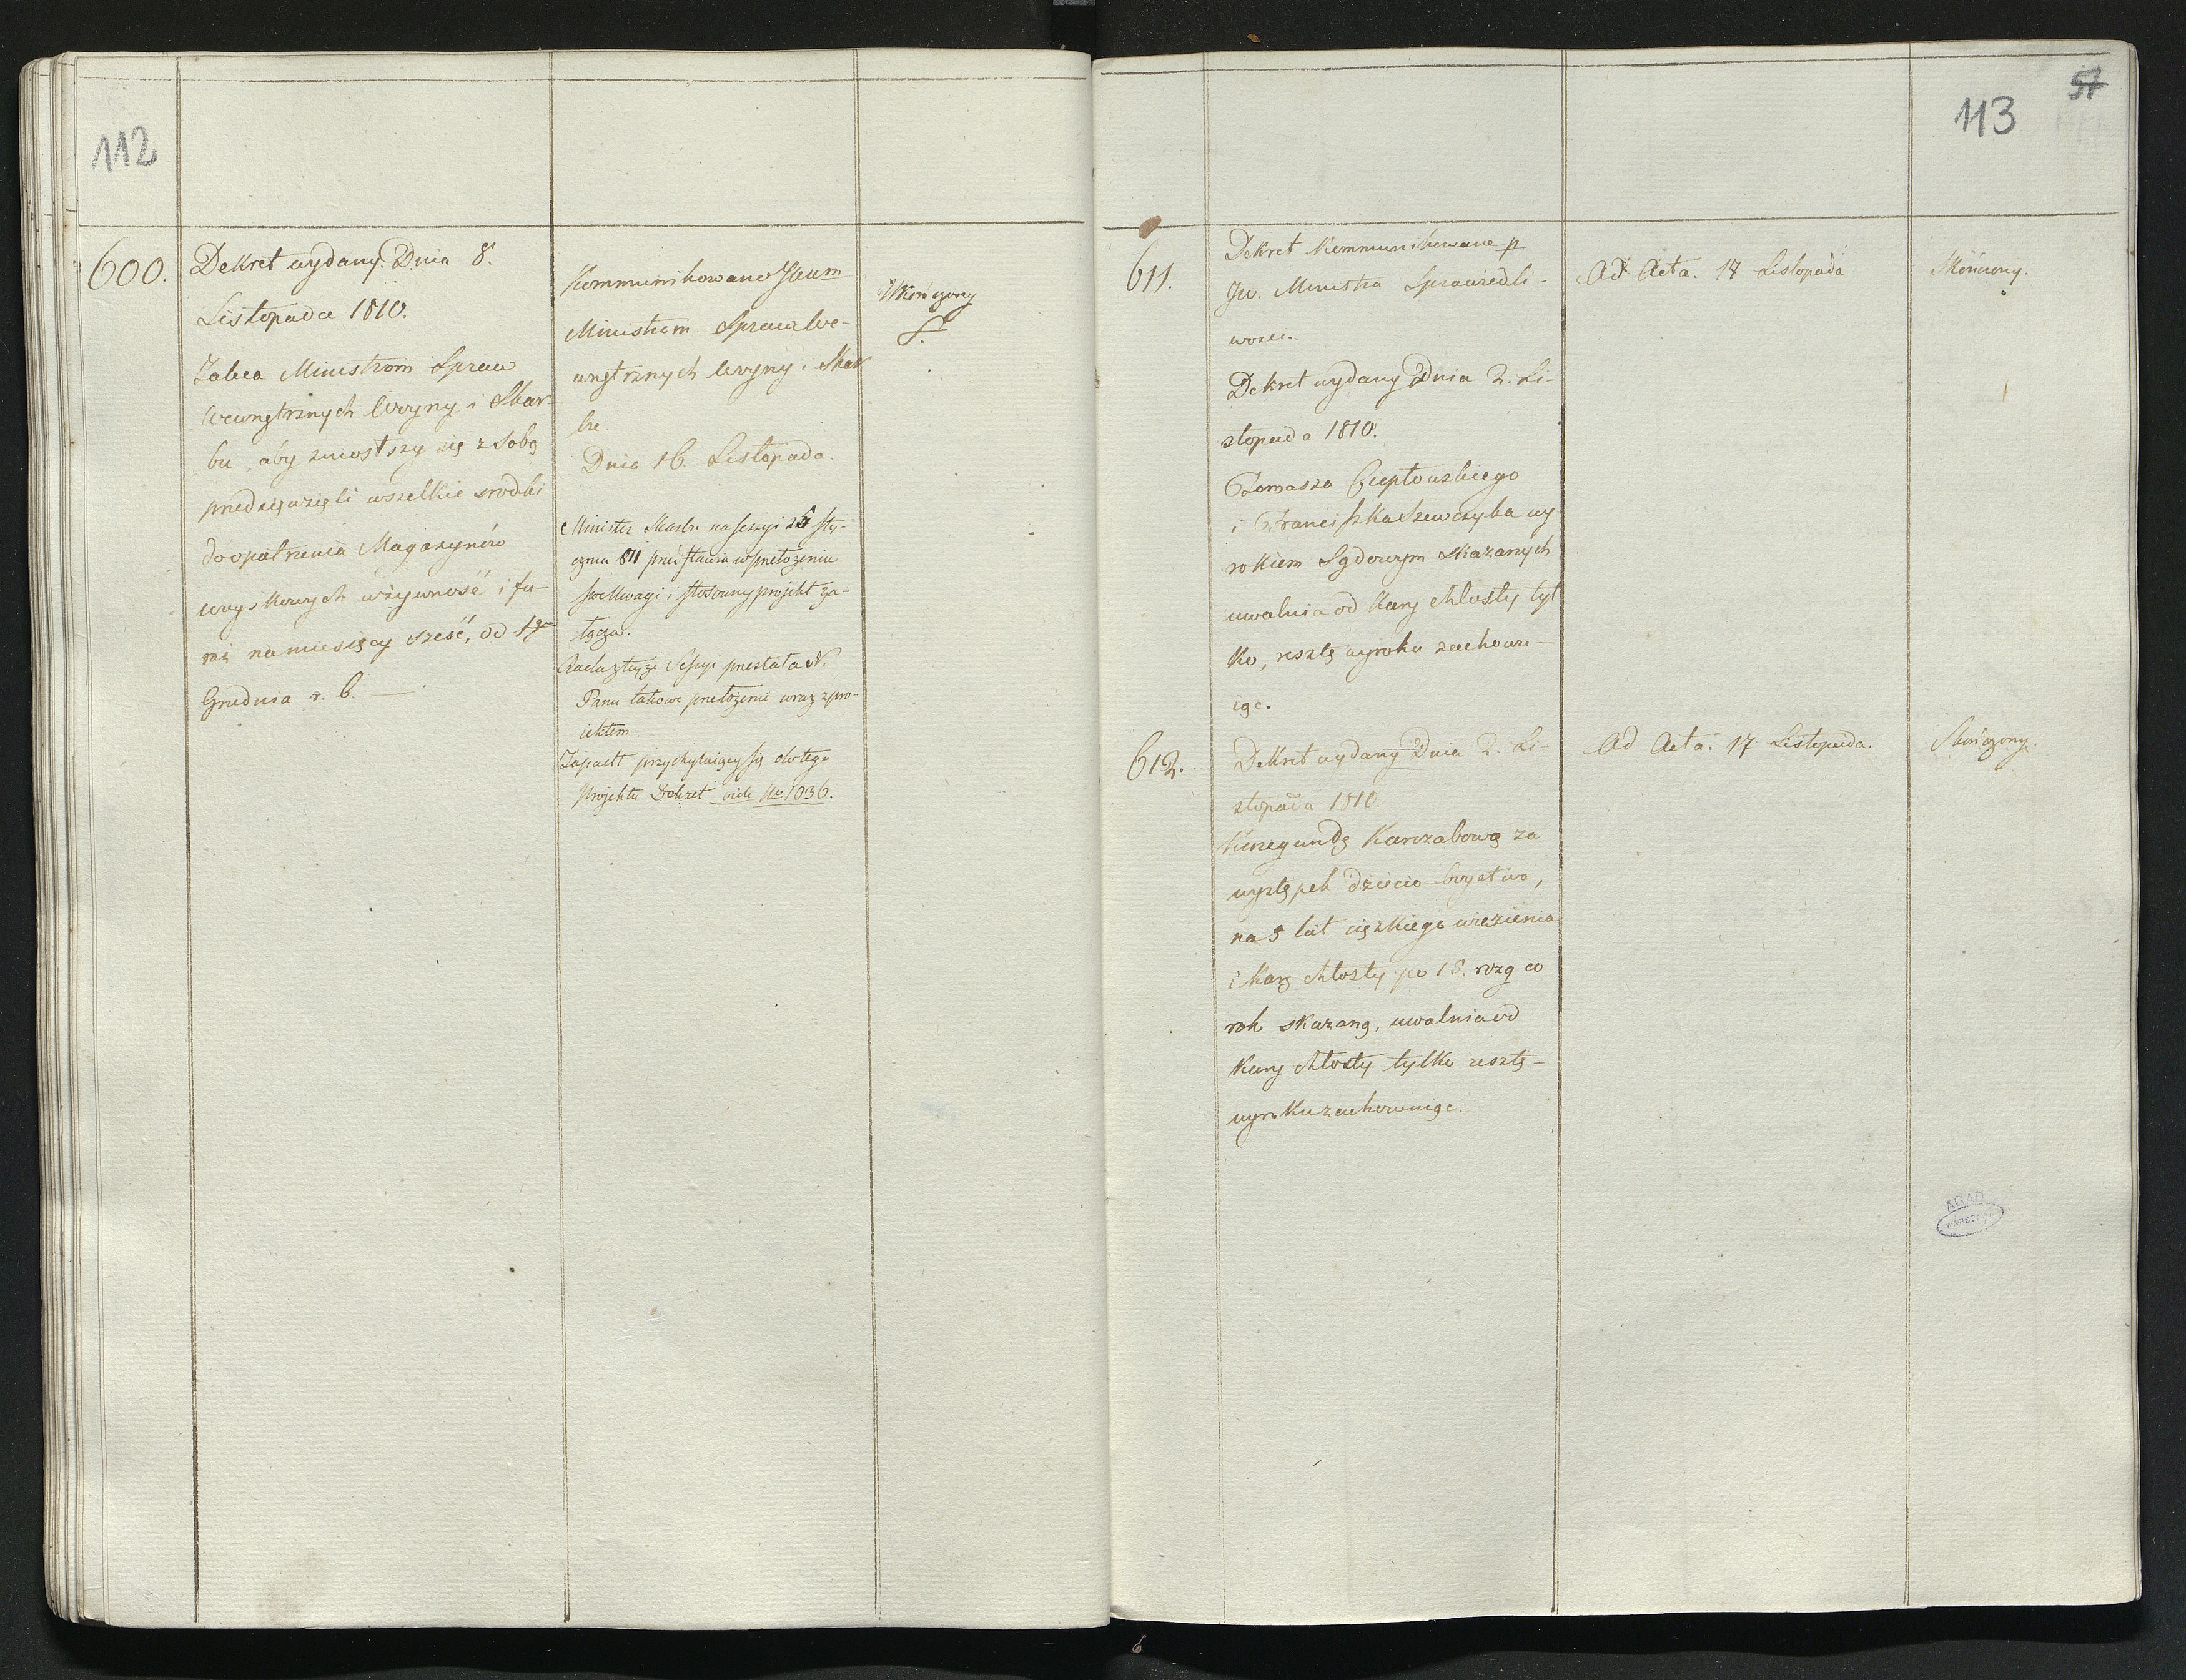 112
600.
Dekret wydany Dnia 8.
Listopada 1810.
Zaleca Ministrom Spraw
Wewnętrznych Woyny i Skar-
bu, aby zniosłszy się z sobą
przedsięwzięli wszelkie srodki
do opatrzenia Magazynów
woyskowych w żywność i fu-
raż na miesięcy sześć, od 1go
Grudnia r. b. —
Kommunikowano JWum
Ministrom Spraw We-
wnętrznych Woyny i Skar
bu
Dnia 16. Listopada.
Minister Skarbu na sessyi 25 Sty-
cznia 811 przedstawia w przełożeniu
swe Uwagi i stosowny projekt za-
łącza.
Rada z tejże Sessyi przesłała N.
Panu takowe przełożenie wraz z pro-
iektem
Zapadł przychylaiący się do tego
projektu Dekret vide No 1036.
Skończony
113
57
611.
Dekret Kommunikowane p
JW. Ministra Sprawiedli-
wości.
Dekret wydany Dnia 2. Li-
stopada 1810.
Tomasza Ciepłouskiego
i Franciszka Szewczyka wy
rokiem Sądowym skazanych
uwalnia od kary chłosty tyl
ko, resztę wyroku zachowu-
iąc.
Ad Acta. 17 Listopada
Skończony.
612.
Dekret wydany Dnia 2. Li-
stopada 1810.
Kunegundę Karzabową za
występek dzieciobóystwa,
na 5 lat ciężkiego więzienia
i karę chłosty po 15. rózg co
rok skazaną, uwalnia od
kary chłosty tylko resztę-
wyroku zachowuiąc.
Ad Acta. 17 Listopada.
Skończony.
AGAD
WARSZAWA